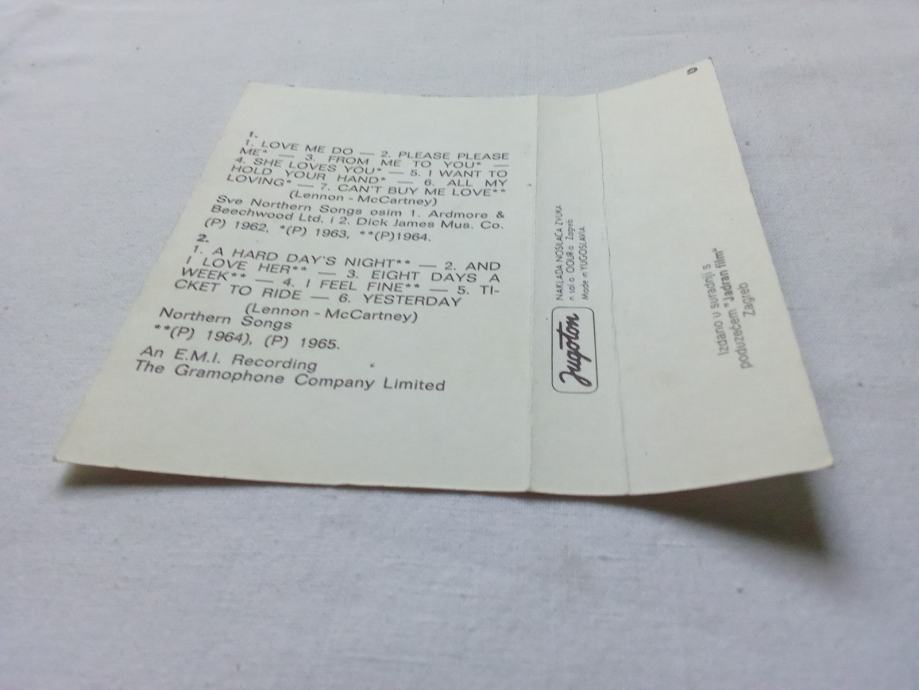 1.
1. LOVE ME DO — 2. PLEASE PLEASE
ME* — 3. FROM ME TO YOU* —
4. SHE LOVES YOU* — 5. I WANT TO
HOLD YOUR HAND* — 6. ALL MY
LOVING* — 7. CAN'T BUY ME LOVE**
(Lennon - McCartney)
Sve Northern Songs osim 1. Ardmore &
Beechwood Ltd. i 2. Dick James Mus. Co.
(P) 1962, *(P) 1963, **(P)1964.
2.
1. A HARD DAY'S NIGHT** — 2. AND
I LOVE HER** — 3. EIGHT DAYS A
WEEK** — 4. I FEEL FINE** — 5. TI-
CKET TO RIDE — 6. YESTERDAY
(Lennon - McCartney)
Northern Songs
**(P) 1964), (P) 1965.
An E.M.I. Recording
The Gramophone Company Limited
Jugoton
NAKLADA NOSILAČA ZVUKA
n sol o OOUR-a Zagreb
Made in YUGOSLAVIA
Izdano u suradnji s
poduzećem "Jadran film"
Zagreb